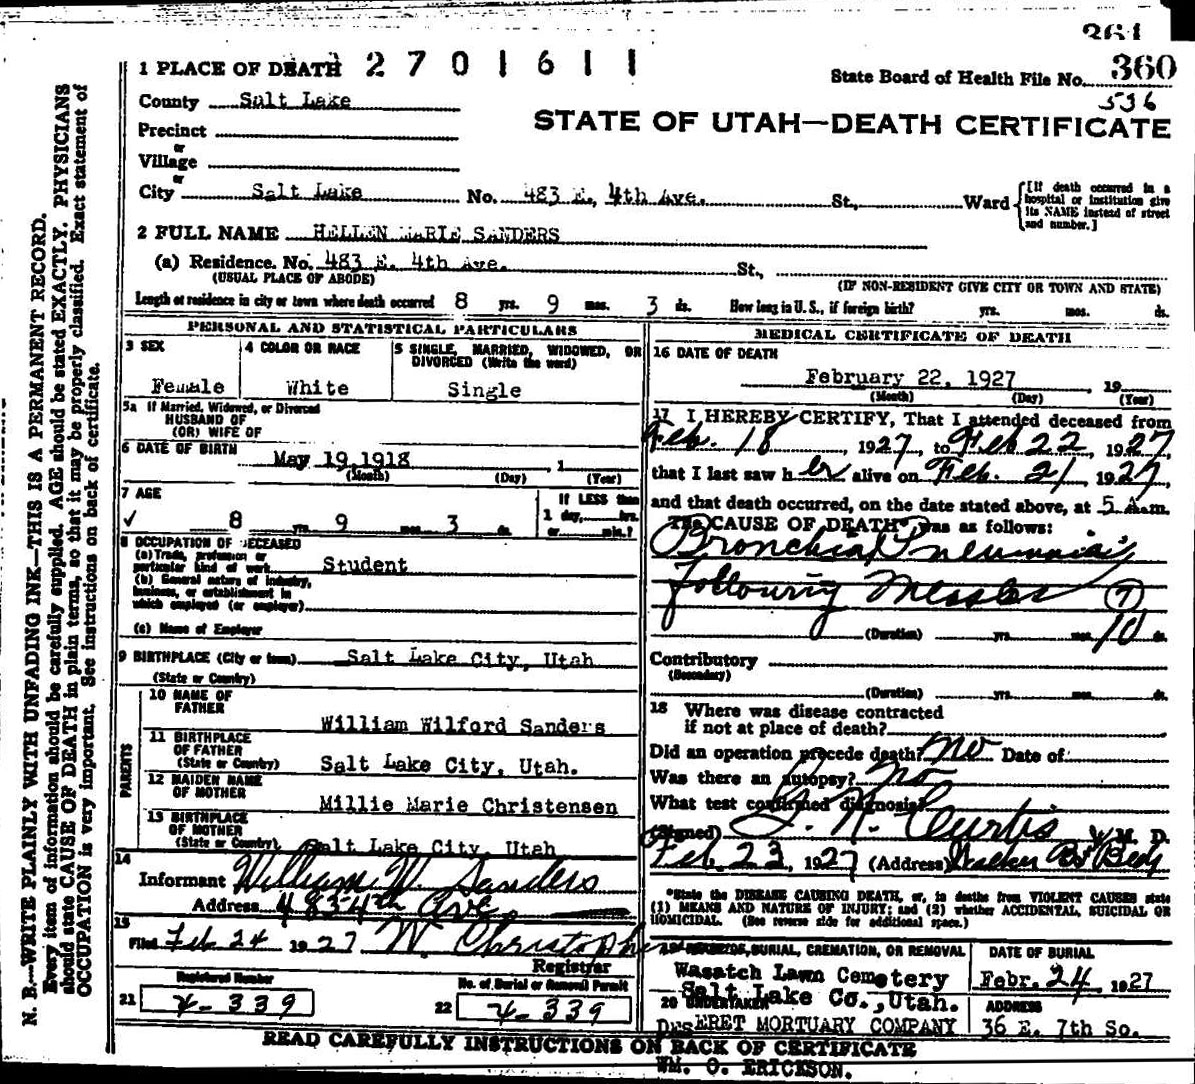 361
1 PLACE OF DEATH 2701611
State Board of Health File No. 360
536
County Salt Lake
STATE OF UTAH—DEATH CERTIFICATE
Precinct
or
Village
or
City Salt Lake No. 483 E. 4th Ave. St., Ward
[If death occurred in a hospital or institution give its NAME instead of street and number.]
2 FULL NAME HELLEN MARIE SANDERS
(a) Residence. No. 483 E. 4th Ave. St.,
(USUAL PLACE OF ABODE) (IF NON-RESIDENT GIVE CITY OR TOWN AND STATE)
Length of residence in city or town where death occurred 8 yrs. 9 mos. 3 ds. How long in U. S., if foreign birth? yrs. mos. ds.
PERSONAL AND STATISTICAL PARTICULARS
3 SEX
Female
4 COLOR OR RACE
White
5 SINGLE, MARRIED, WIDOWED, OR
DIVORCED (Write the word)
Single
5a If Married, Widowed, or Divorced
HUSBAND OF
(OR) WIFE OF
6 DATE OF BIRTH
May 19, 1918 , 1
(Month) (Day) (Year)
7 AGE
8 yrs. 9 mos. 3 ds.
If LESS than
1 day, hrs.
or min.?
8 OCCUPATION OF DECEASED
(a) Trade, profession or
particular kind of work Student
(b) General nature of industry,
business, or establishment in
which employed (or employer)
(c) Name of Employer
9 BIRTHPLACE (City or town) Salt Lake City, Utah
(State or Country)
PARENTS
10 NAME OF
FATHER
William Wilford Sanders
11 BIRTHPLACE
OF FATHER
(State or Country) Salt Lake City, Utah.
12 MAIDEN NAME
OF MOTHER
Millie Marie Christensen
13 BIRTHPLACE
OF MOTHER
(State or Country) Salt Lake City, Utah
14
Informant William W Sanders
Address 483 4th Ave
15
Filed Feb 24 1927 W. Christophe
Registrar
Registered Number
21 4-339
No. of Burial or Removal Permit
22 4-339
MEDICAL CERTIFICATE OF DEATH
16 DATE OF DEATH
February 22, 1927 , 19
(Month) (Day) (Year)
17 I HEREBY CERTIFY, That I attended deceased from
Feb. 18, 1927, to Feb 22, 1927,
that I last saw her alive on Feb. 21, 1927,
and that death occurred, on the date stated above, at 5 A.m.
The CAUSE OF DEATH* was as follows:
Bronchial Pneumonia
following Measles 7
(Duration) yrs. mos. 10 ds.
Contributory
(Secondary)
(Duration) yrs. mos. ds.
18 Where was disease contracted
if not at place of death?
Did an operation precede death? No Date of
Was there an autopsy? No
What test confirmed diagnosis?
(Signed) Curtis M. D.
Feb. 23, 1927 (Address)
*State the DISEASE CAUSING DEATH, or, in deaths from VIOLENT CAUSES state
(1) MEANS AND NATURE OF INJURY; and (2) whether ACCIDENTAL, SUICIDAL OR
HOMICIDAL. (See reverse side for additional space.)
BURIAL, CREMATION, OR REMOVAL
Wasatch Lawn Cemetery
Salt Lake Co., Utah.
DATE OF BURIAL
Febr. 24, 1927
20 UNDERTAKER
DESERET MORTUARY COMPANY
ADDRESS
36 E. 7th So.
READ CAREFULLY INSTRUCTIONS ON BACK OF CERTIFICATE
WM. O. ERICKSON.
N. B.—WRITE PLAINLY WITH UNFADING INK—THIS IS A PERMANENT RECORD.
Every item of information should be carefully supplied. AGE should be stated EXACTLY. PHYSICIANS
should state CAUSE OF DEATH in plain terms, so that it may be properly classified. Exact statement of
OCCUPATION is very important. See instructions on back of certificate.